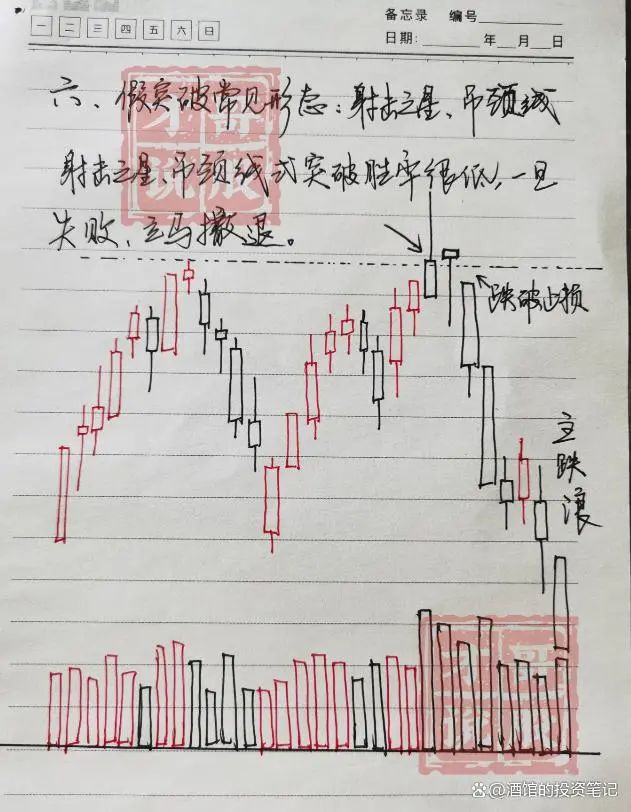 备忘录 编号
一二三四五六日
日期: 年 月 日
六、假突破常见形态：射击之星、吊颈线
射击之星、吊颈线式突破胜率很低，一旦
失败，立马撤退。
跌破止损
主跌浪
酒馆的投资笔记